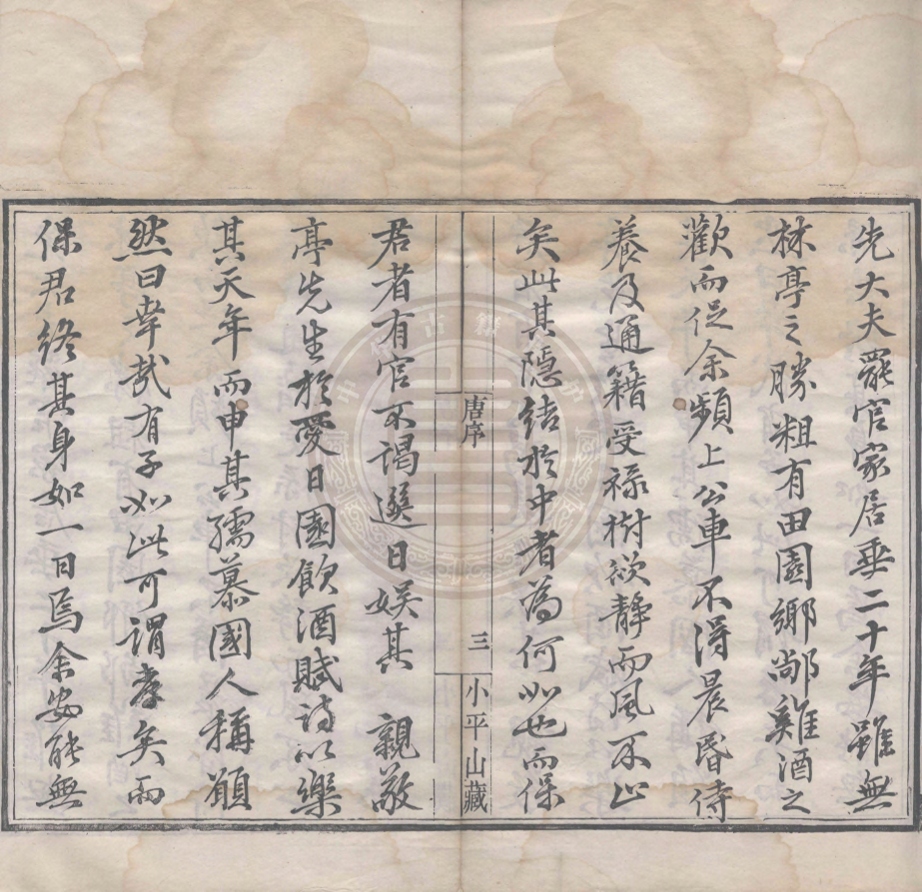 先大夫罷官家居垂二十年雖無
林亭之勝粗有田園鄉鄰雞酒之
歡而促余頻上公車不得晨昏侍
養及通籍受祿樹欲靜而風不止
矣此其隱結於中者為何如也而保
唐序
三
小平山藏
君者有官不謁選日娛其 親敬
亭先生於愛日園飲酒賦詩以樂
其天年而申其孺慕國人稱願
然曰幸哉有子如此可謂孝矣而
保君終其身如一日焉余安能無